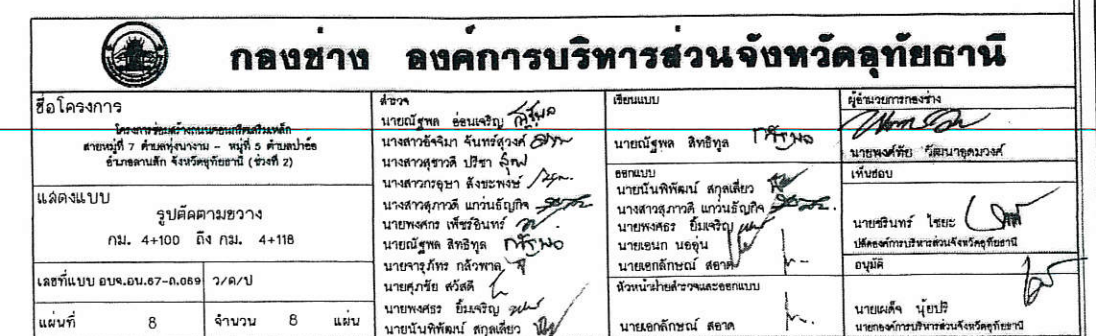 กองช่าง องค์การบริหารส่วนจังหวัดอุทัยธานี
ชื่อโครงการ
โครงการซ่อมสร้างถนนคอนกรีตเสริมเหล็ก
สายหมู่ที่ 7 ตำบลทุ่งนางาม - หมู่ที่ 5 ตำบลป่าอ้อ
อำเภอลานสัก จังหวัดอุทัยธานี (ช่วงที่ 2)
แสดงแบบ
รูปตัดตามขวาง
กม. 4+100 ถึง กม. 4+118
เลขที่แบบ อบจ.อน.67-ถ.069
ว/ด/ป
แผ่นที่ 8
จำนวน 8 แผ่น
สำรวจ
นายณัฐพล อ่อนเจริญ
นางสาวอัจจิมา จันทร์สุวงค์
นางสาวสุชาวดี ปรีชา
นางสาวกรอุษา สังขะพงษ์
นางสาวสุภาวดี แกว่นธัญกิจ
นายพงศกร เพ็ชร์อินทร์
นายณัฐพล สิทธิทูล
นายจารุภัทร กลัวพาล
นายศุภชัย สวัสดี
นายพงศธร ยิ้มเจริญ
นายนันพิพัฒน์ สกุลเลี่ยว
เขียนแบบ
นายณัฐพล สิทธิทูล
ออกแบบ
นายนันพิพัฒน์ สกุลเลี่ยว
นางสาวสุภาวดี แกว่นธัญกิจ
นายพงศธร ยิ้มเจริญ
นายเอนก นออุ่น
นายเอกลักษณ์ สอาด
หัวหน้าฝ่ายสำรวจและออกแบบ
นายเอกลักษณ์ สอาด
ผู้อำนวยการกองช่าง
นายพงศ์ทัย วัฒนาอุดมวงศ์
เห็นชอบ
นายชรินทร์ ไชยะ
ปลัดองค์การบริหารส่วนจังหวัดอุทัยธานี
อนุมัติ
นายเผด็จ นุ้ยปรี
นายกองค์การบริหารส่วนจังหวัดอุทัยธานี